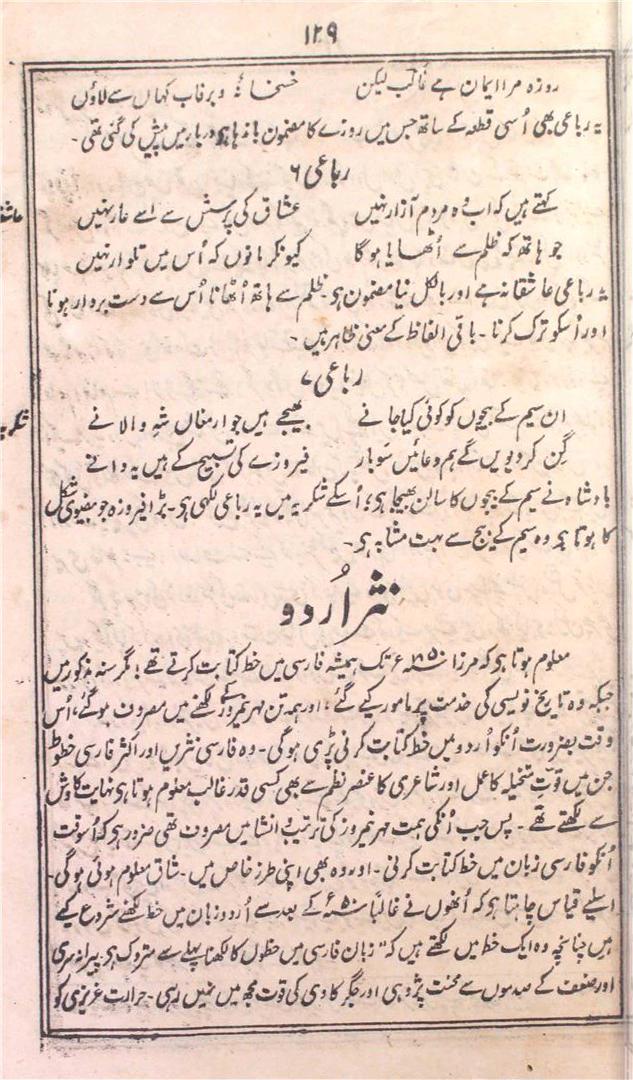 ۱۲۹
روزہ مرا ایمان ہے غالب لیکن خسخانۂ و برفاب کہاں سے لاؤں
یہ رباعی بھی اُسی قطعہ کے ساتھ جس میں روزے کا مضمون باندھا ہے دربار میں پیش کی گئی تھی۔
رباعی ۶
کہتے ہیں کہ اب وہ مردم آزار نہیں عشاق کی پرسش سے اسے عار نہیں
جو ہاتھ کہ ظلم سے اُٹھایا ہوگا کیونکر مانوں کہ اُس میں تلوار نہیں
یہ رباعی عاشقانہ ہے اور بالکل نیا مضمون ہی۔ ظلم سے ہاتھ اُٹھانا اُس سے دست بردار ہونا
اور اُسکو ترک کرنا۔ باقی الفاظ کے معنی ظاہر ہیں۔
رباعی ۷
ان سیم کے بیجوں کو کوئی کیا جانے بھیجے ہیں جو ارمغاں شہِ والا نے
گِن کر دیویں گے ہم دعائیں سَو بار فیروزے کی تسبیح کے ہیں یہ دانے
بادشاہ نے سیم کے بیجوں کا سالن بھیجا ہی، اُسکے شکریہ میں یہ رباعی لکھی ہی۔ بڑا فیروزہ جو بیضوی شکل
کا ہوتا ہی وہ سیم کے بیج سے بہت مشابہ ہی۔
نثر اُردو
معلوم ہوتا ہی کہ مرزا ۱۸۵۰ء تک ہمیشہ فارسی میں خط کتابت کرتے تھے؛ مگر سنہ مذکور میں
جبکہ وہ تاریخ نویسی کی خدمت پر مامور کیے گئے، اور ہمہ تن مہر نیمروز کے لکھنے میں مصروف ہوگئے، اُس
وقت بضرورت اُنکو اُردو میں خط کتابت کرنی پڑی ہوگی۔ وہ فارسی نثریں اور اکثر فارسی خطوط
جن میں قوّتِ متخیلہ کا عمل اور شاعری کا عنصر نظم سے بھی کسی قدر غالب معلوم ہوتا ہی نہایت کاوش
سے لکھتے تھے۔ پس جب اُنکی ہمت مہر نیمروز کی ترتیب و انشا میں مصروف تھی ضرور ہی کہ اُسوقت
اُنکو فارسی زبان میں خط کتابت کرنی۔ اور وہ بھی اپنی طرز خاص میں۔ شاق معلوم ہوئی ہوگی۔
اسلیے قیاس چاہتا ہی کہ اُنھوں نے غالباً ۵۰ء کے بعد سے اُردو زبان میں خط لکھنے شروع کیے
ہیں چنانچہ وہ ایک خط میں لکھتے ہیں کہ "زبان فارسی میں خطوں کا لکھنا پہلے سے متروک ہی۔ پیرانہ سری
اور ضعف کے صدموں سے محنت پژوہی اور جگر کاوی کی قوت مجھ میں نہیں رہی۔ حرارت غریزی کو